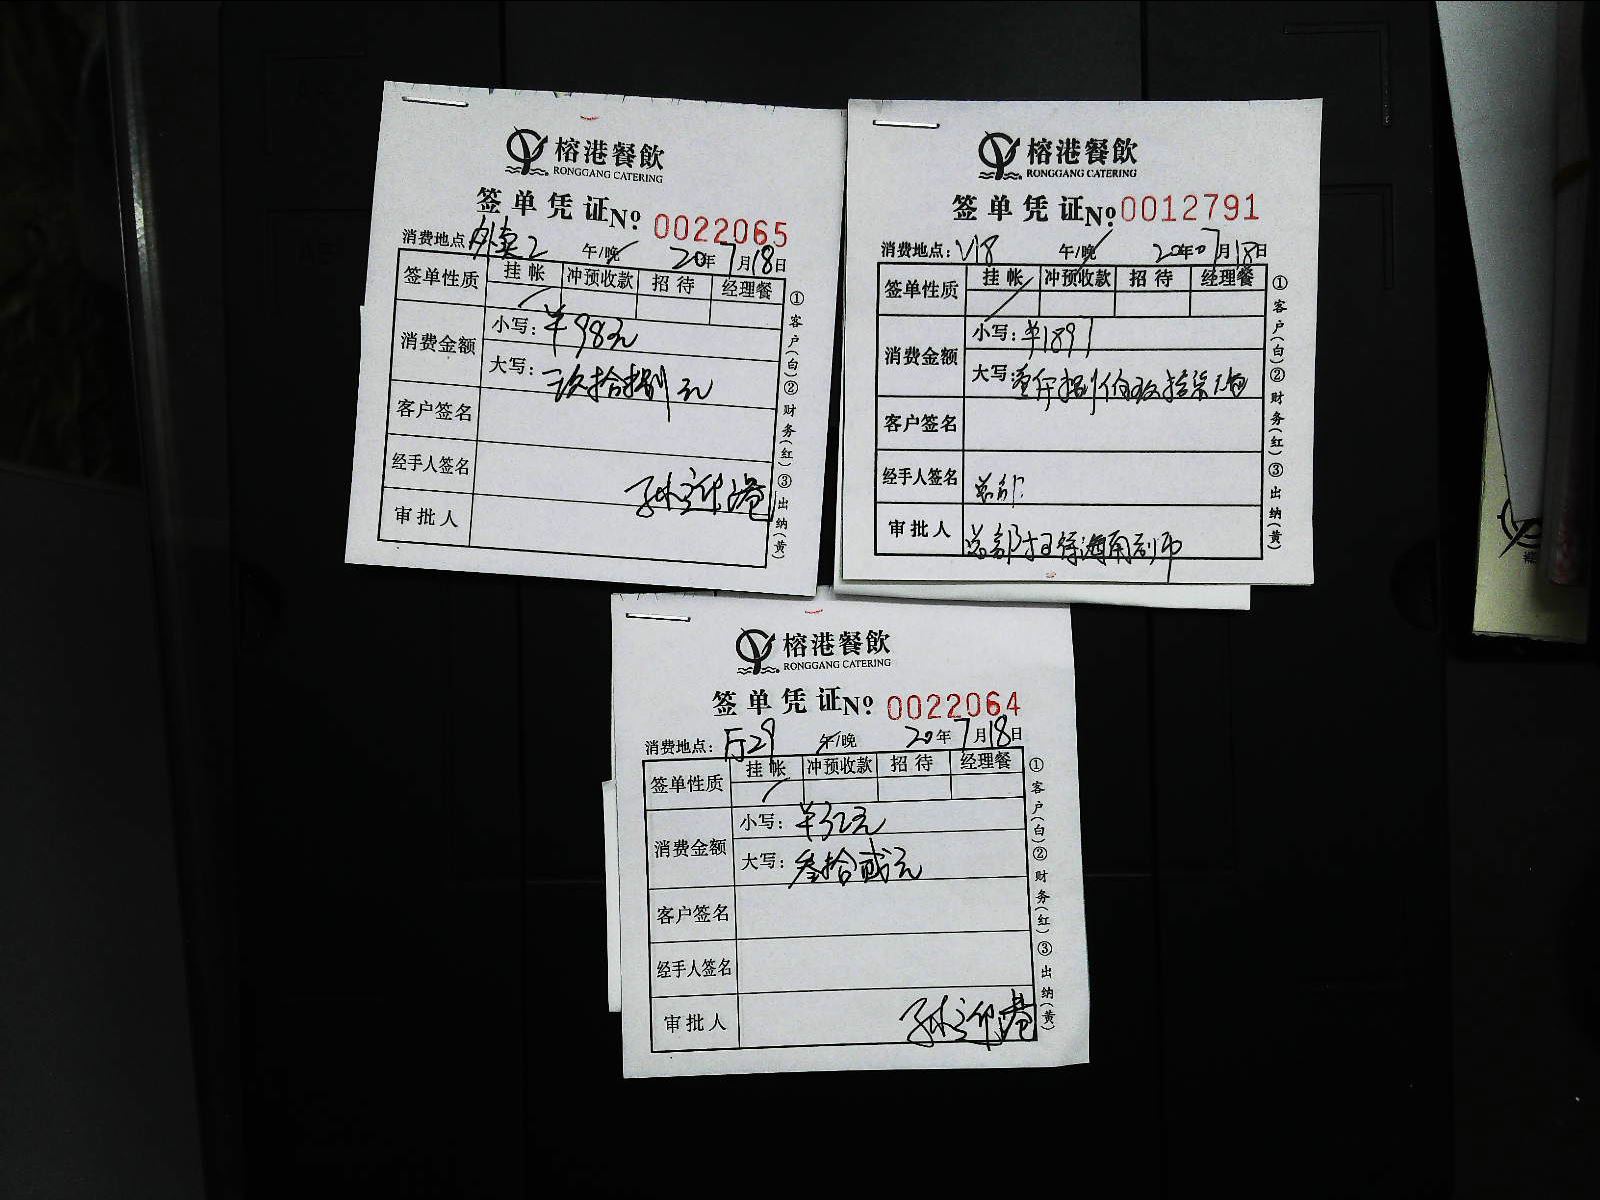 榕港餐飲
RONGGANG CATERING
签单凭证 Nº 0022065
消费地点: 外卖2 午/晚 20年7月18日
签单性质 挂帐 冲预收款 招待 经理餐
消费金额 小写: ¥98元
大写: 玖拾捌元
客户签名
经手人签名
审批人
①客户(白)②财务(红)③出纳(黄)
榕港餐飲
RONGGANG CATERING
签单凭证 Nº 0012791
消费地点: V18 午/晚 20年7月18日
签单性质 挂帐 冲预收款 招待 经理餐
消费金额 小写: ¥1897
大写: 壹仟捌佰玖拾柒
客户签名
经手人签名 总部
审批人 总部
①客户(白)②财务(红)③出纳(黄)
榕港餐飲
RONGGANG CATERING
签单凭证 Nº 0022064
消费地点: 厅29 午/晚 20年7月18日
签单性质 挂帐 冲预收款 招待 经理餐
消费金额 小写: ¥32元
大写: 叁拾贰元
客户签名
经手人签名
审批人
①客户(白)②财务(红)③出纳(黄)